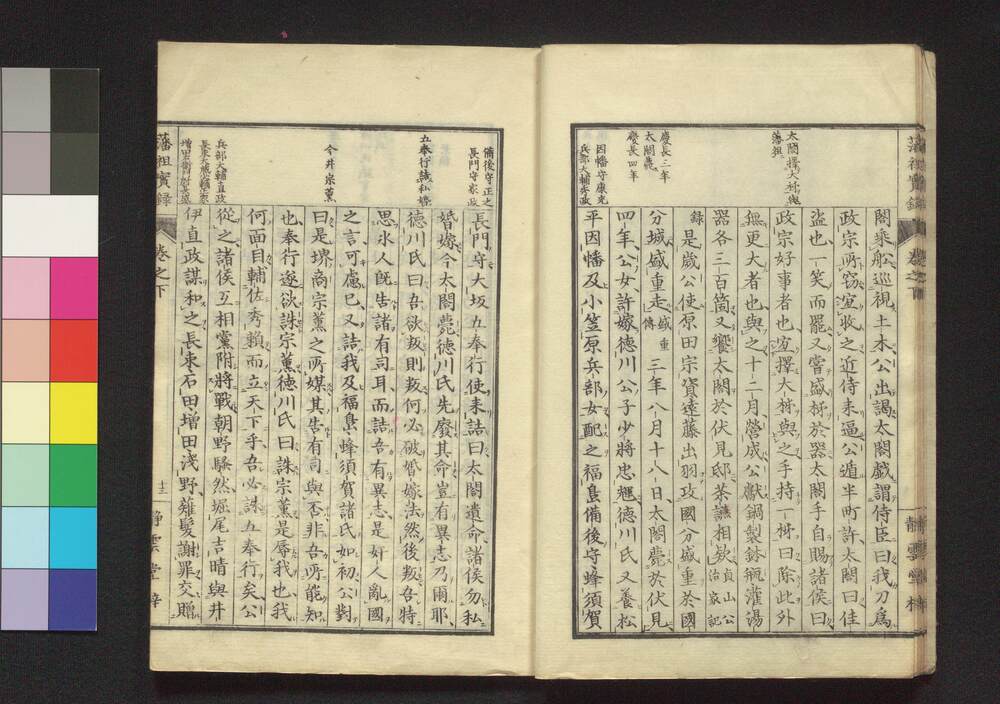 藩祖實錄
卷之下
靜雲堂梓
太閤擇大柹與藩祖
慶長三年
太閤薨
慶長四年
因幡守康元
兵部大輔秀政
閤乘船巡視土木公出謁太閤戲謂侍臣曰我刀爲
政宗所竊宜收之近侍来逼公遁半町許太閤曰佳
盜也一笑而罷又嘗盛柹於器太閤手自賜諸侯曰
政宗好事者也宜擇大柹與之手持一柹曰除此外
無更大者也與之十二月營成公獻鍋製鉢瓶灌湯
器各三百箇又饗太閤於伏見邸茶讌相欸貞山公治家記
録是歲公使原田宗資遠藤出羽攻國分盛重於國
分城盛重走盛重傳三年八月十八日太閤薨於伏見
四年公女許嫁德川公子少將忠輝德川氏又養松
平因幡及小笠原兵部女配之福島備後守蜂須賀
備後守正之
長門守家政
五奉行議私婚
今井宗薫
兵部大輔直政
長束大藏大輔正家
增田右衛門尉長盛
長門守大坂五奉行使来詰曰太閤遺命諸侯勿私
婚嫁今太閤薨德川氏先廢其命豈有異志乃爾耶
德川氏曰吾欲叛則叛何必破婚嫁法然後叛吾特
思氷人既告諸有司耳而詰吾有異志是奸人亂國
之言可慮已又詰我及福島蜂須賀諸氏如初公對
曰是堺商宗薫之所媒其告有司與否非吾所能知
也奉行遂欲誅宗薫德川氏曰誅宗薫是辱我也我
何面目輔佐秀頼而立天下乎吾必誅五奉行矣公
從之諸侯互相黨附將戰朝野騷然堀尾吉晴與井
伊直政謀和之長束石田增田淺野薙髪謝罪交贈
藩祖實錄
卷之下
十三
靜雲堂梓